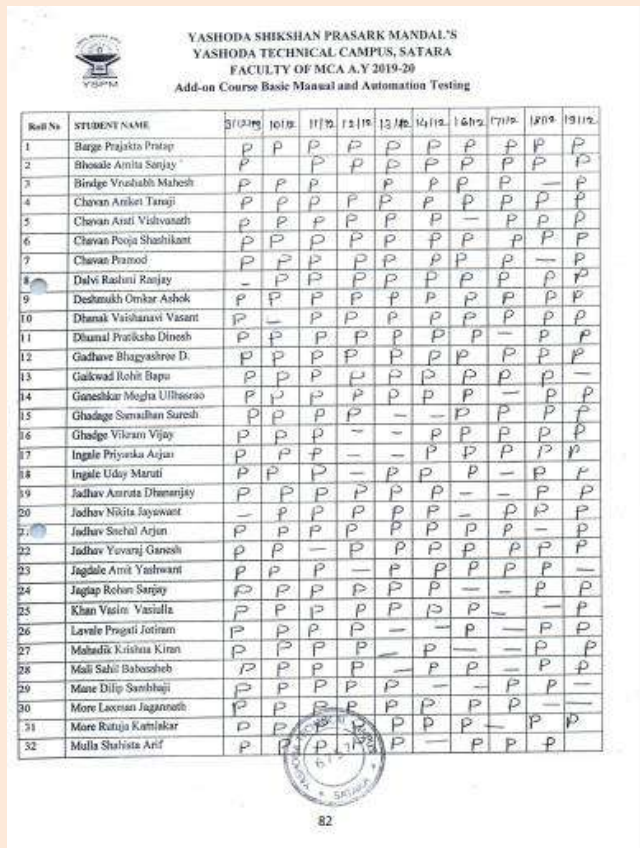 YSPM
YASHODA SHIKSHAN PRASARK MANDAL'S
YASHODA TECHNICAL CAMPUS, SATARA
FACULTY OF MCA A.Y 2019-20
Add-on Course Basic Manual and Automation Testing
Roll No STUDENT NAME 10/12 11/12 12/12 13/12 14/12 16/12 17/12 18/12 19/12
1 Barge Prajakta Pratap P P P P P P P P P P
2 Bhosale Amita Sanjay P P P P P P P P P
3 Bindge Vrushabh Mahesh P P P P P P P — P
4 Chavan Aniket Tanaji P P P P P P P P P P
5 Chavan Arati Vishvanath P P P P P P — P P P
6 Chavan Pooja Shashikant P P P P P P P P P P
7 Chavan Pramod P P P P P P P P — P
8 Dalvi Rashmi Ranjay — P P P P P P P P P
9 Deshmukh Omkar Ashok P P P P P P P P P P
10 Dhanak Vaishanavi Vasant P — P P P P P P P P
11 Dhumal Pratiksha Dinesh P P P P P P P — P P
12 Gadhave Bhagyashree D. P P P P P P P P P P
13 Gaikwad Rohit Bapu P P P P P P P P P —
14 Ganeshkar Megha Ullhasrao P P P P P P P — P P
15 Ghadage Samadhan Suresh P P P P — — P P P P
16 Ghadge Vikram Vijay P P P — — P P P P P
17 Ingale Priyanka Arjun P P P — — P P P P P
18 Ingale Uday Maruti P P P — P P P — P P
19 Jadhav Amruta Dhananjay P P P P P P — — P P
20 Jadhav Nikita Jayawant — P P P P P — P P P
Jadhav Snehal Arjun P P P P P P P P — P
22 Jadhav Yuvaraj Ganesh P P — P P P P P P P
23 Jagdale Amit Yashwant P P P — P P P P P —
24 Jagtap Rohan Sanjay P P P P P P — — P P
25 Khan Vasim Vasiulla P P P P P P P — — P
26 Lavale Pragati Jotiram P P P P — — P — P P
27 Mahadik Krishna Kiran P P P P — P — — P P
28 Mali Sahil Babasaheb P P P P — P P — P P
29 Mane Dilip Sambhaji P P P P P — — P P —
30 More Laxman Jagannath P P P P P P P P — —
31 More Rutuja Kamlakar P P P P P P P — P P
32 Mulla Shahista Arif P P P P P — P P P
SATARA
82